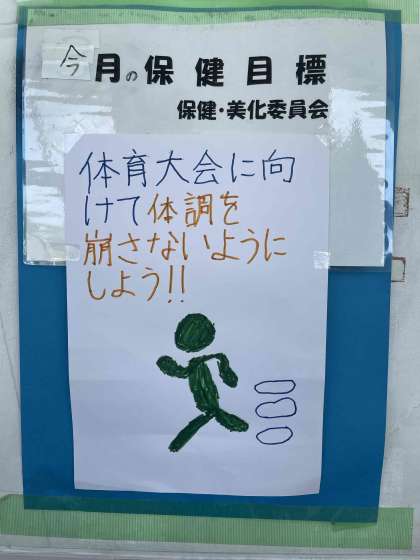 今月の保健目標
保健・美化委員会
体育大会に向
けて体調を
崩さないように
しよう!!